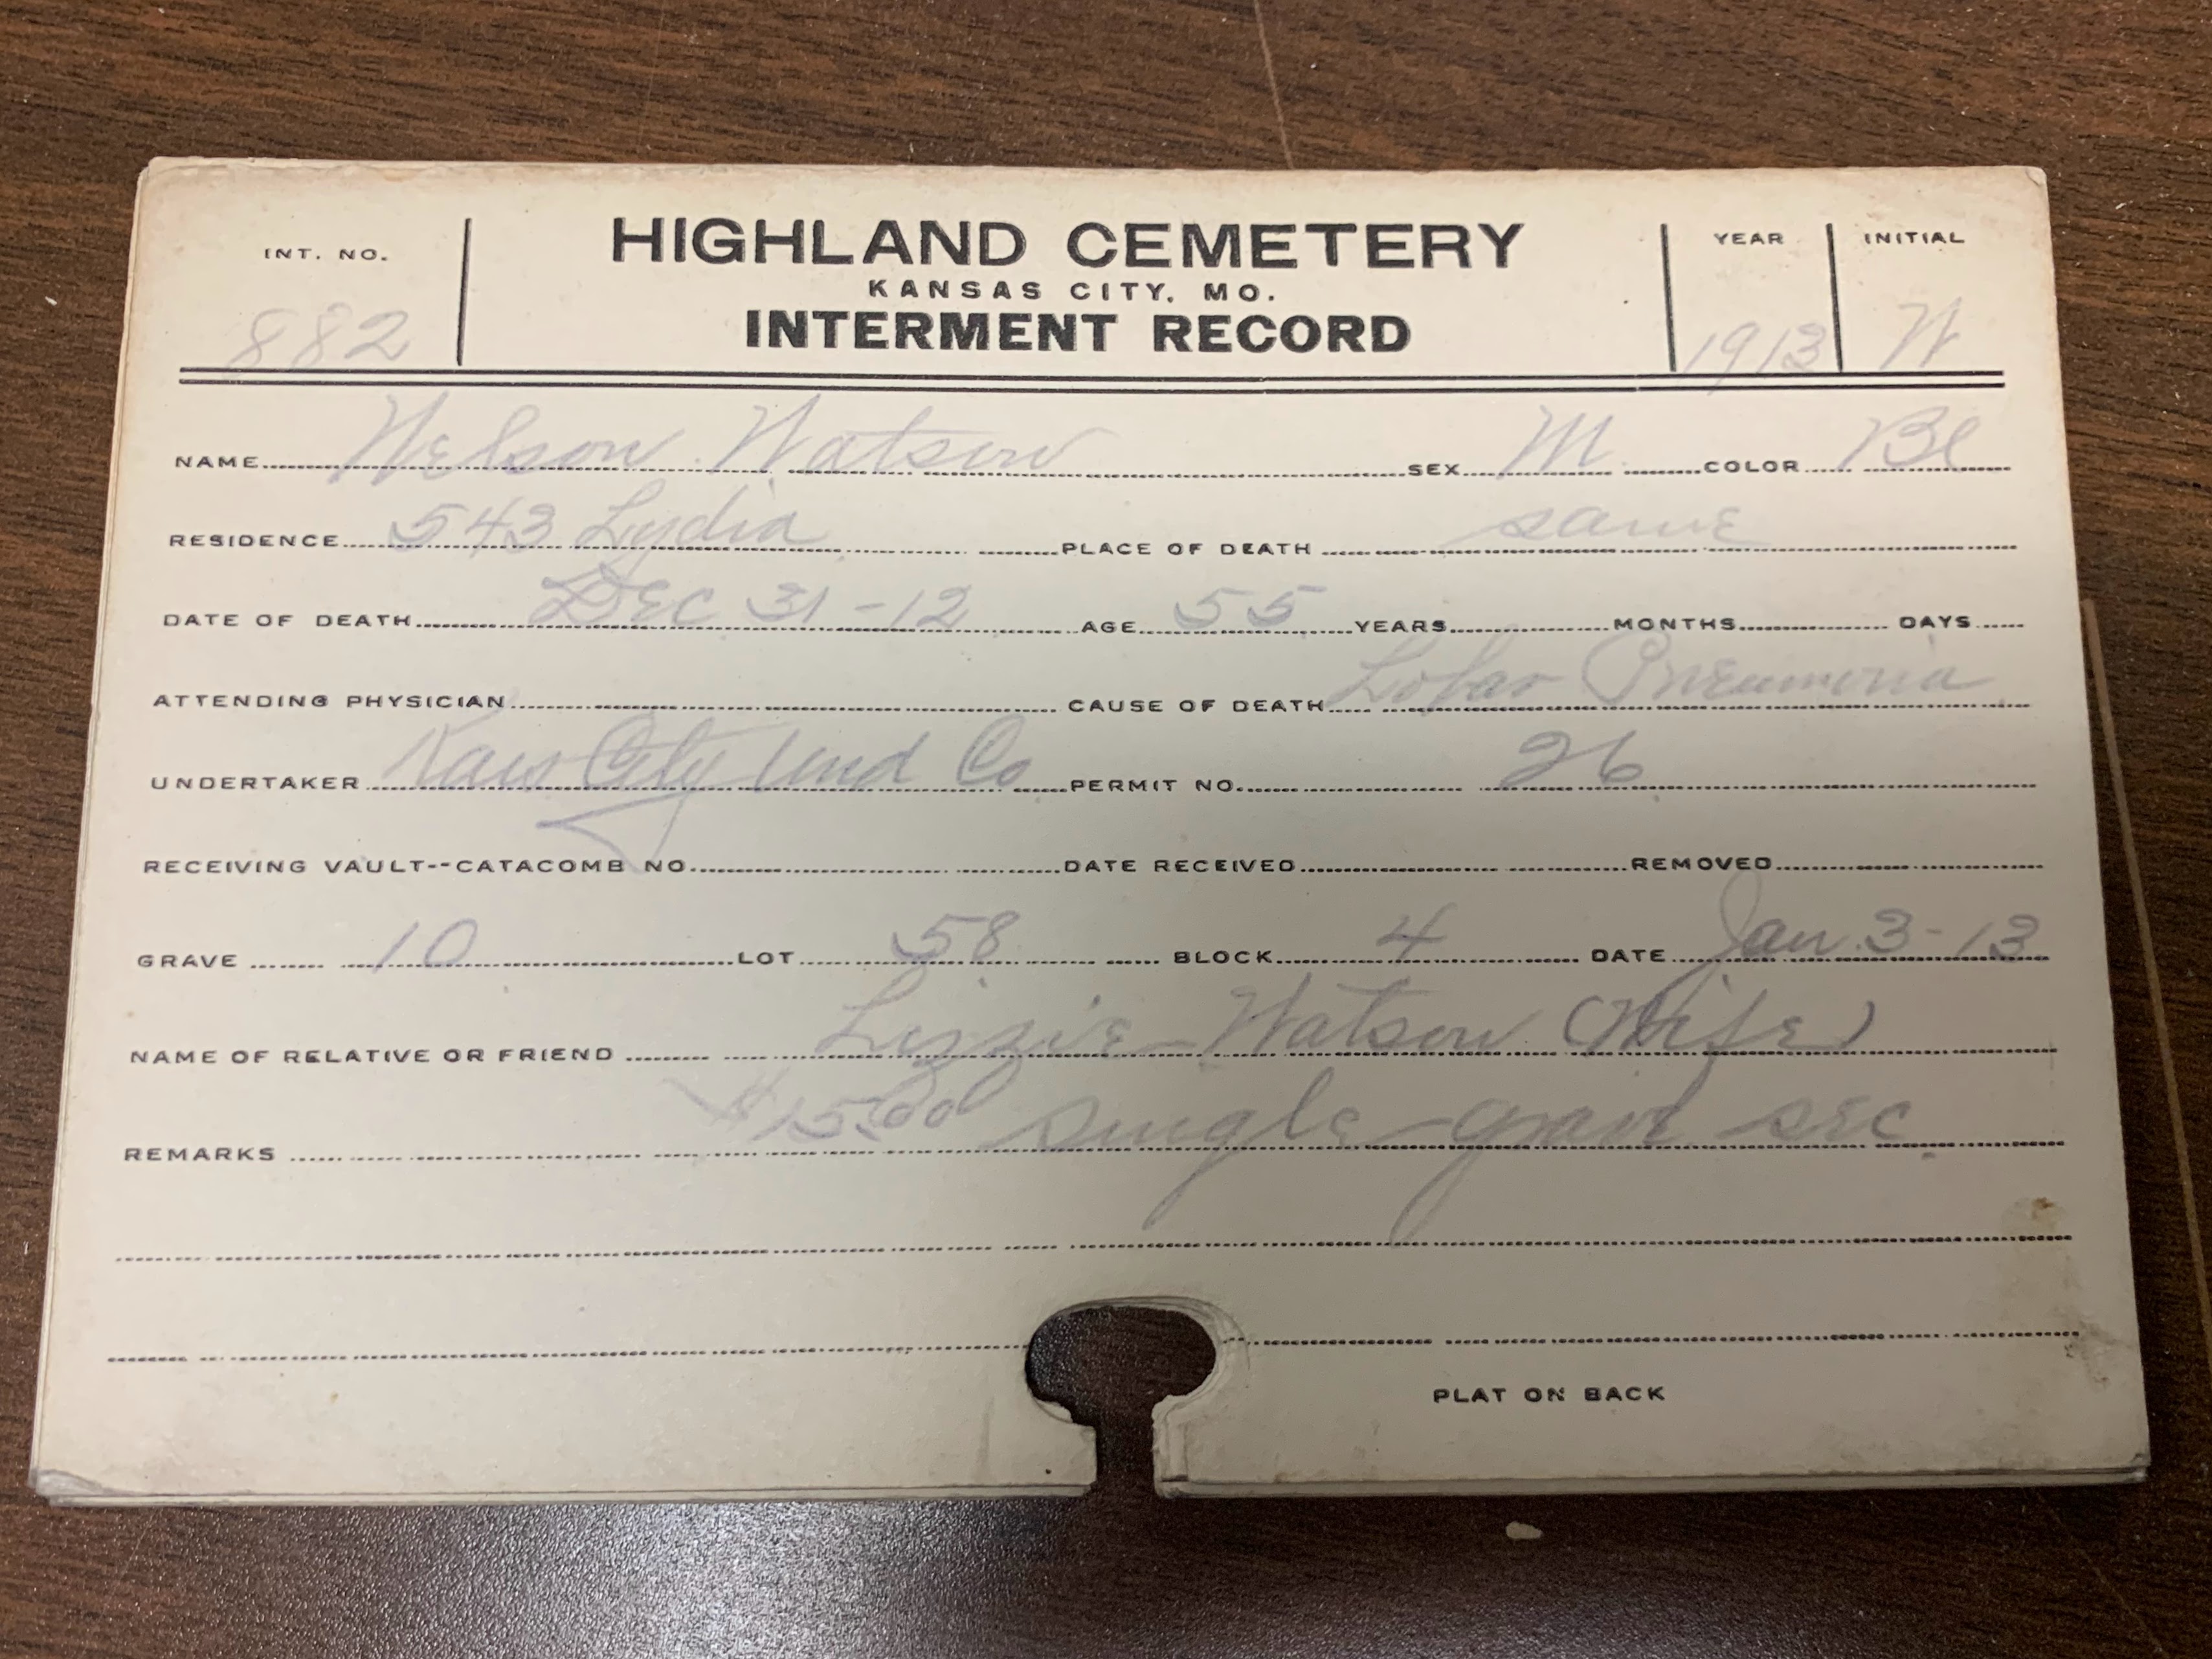 INT. NO. HIGHLAND CEMETERY YEAR INITIAL
KANSAS CITY, MO.
882 INTERMENT RECORD 1913 W
NAME Nelson Watson SEX M COLOR Bl
RESIDENCE 543 Lydia PLACE OF DEATH same
DATE OF DEATH Dec 31-12 AGE 55 YEARS MONTHS DAYS
ATTENDING PHYSICIAN CAUSE OF DEATH Lobar Pneumonia
UNDERTAKER Kaw City Und Co PERMIT NO. 26
RECEIVING VAULT--CATACOMB NO. DATE RECEIVED REMOVED
GRAVE 10 LOT 58 BLOCK 4 DATE Jan. 3-13
NAME OF RELATIVE OR FRIEND Lizzie Watson (Wife)
REMARKS $15.00 Single grave sec
PLAT ON BACK